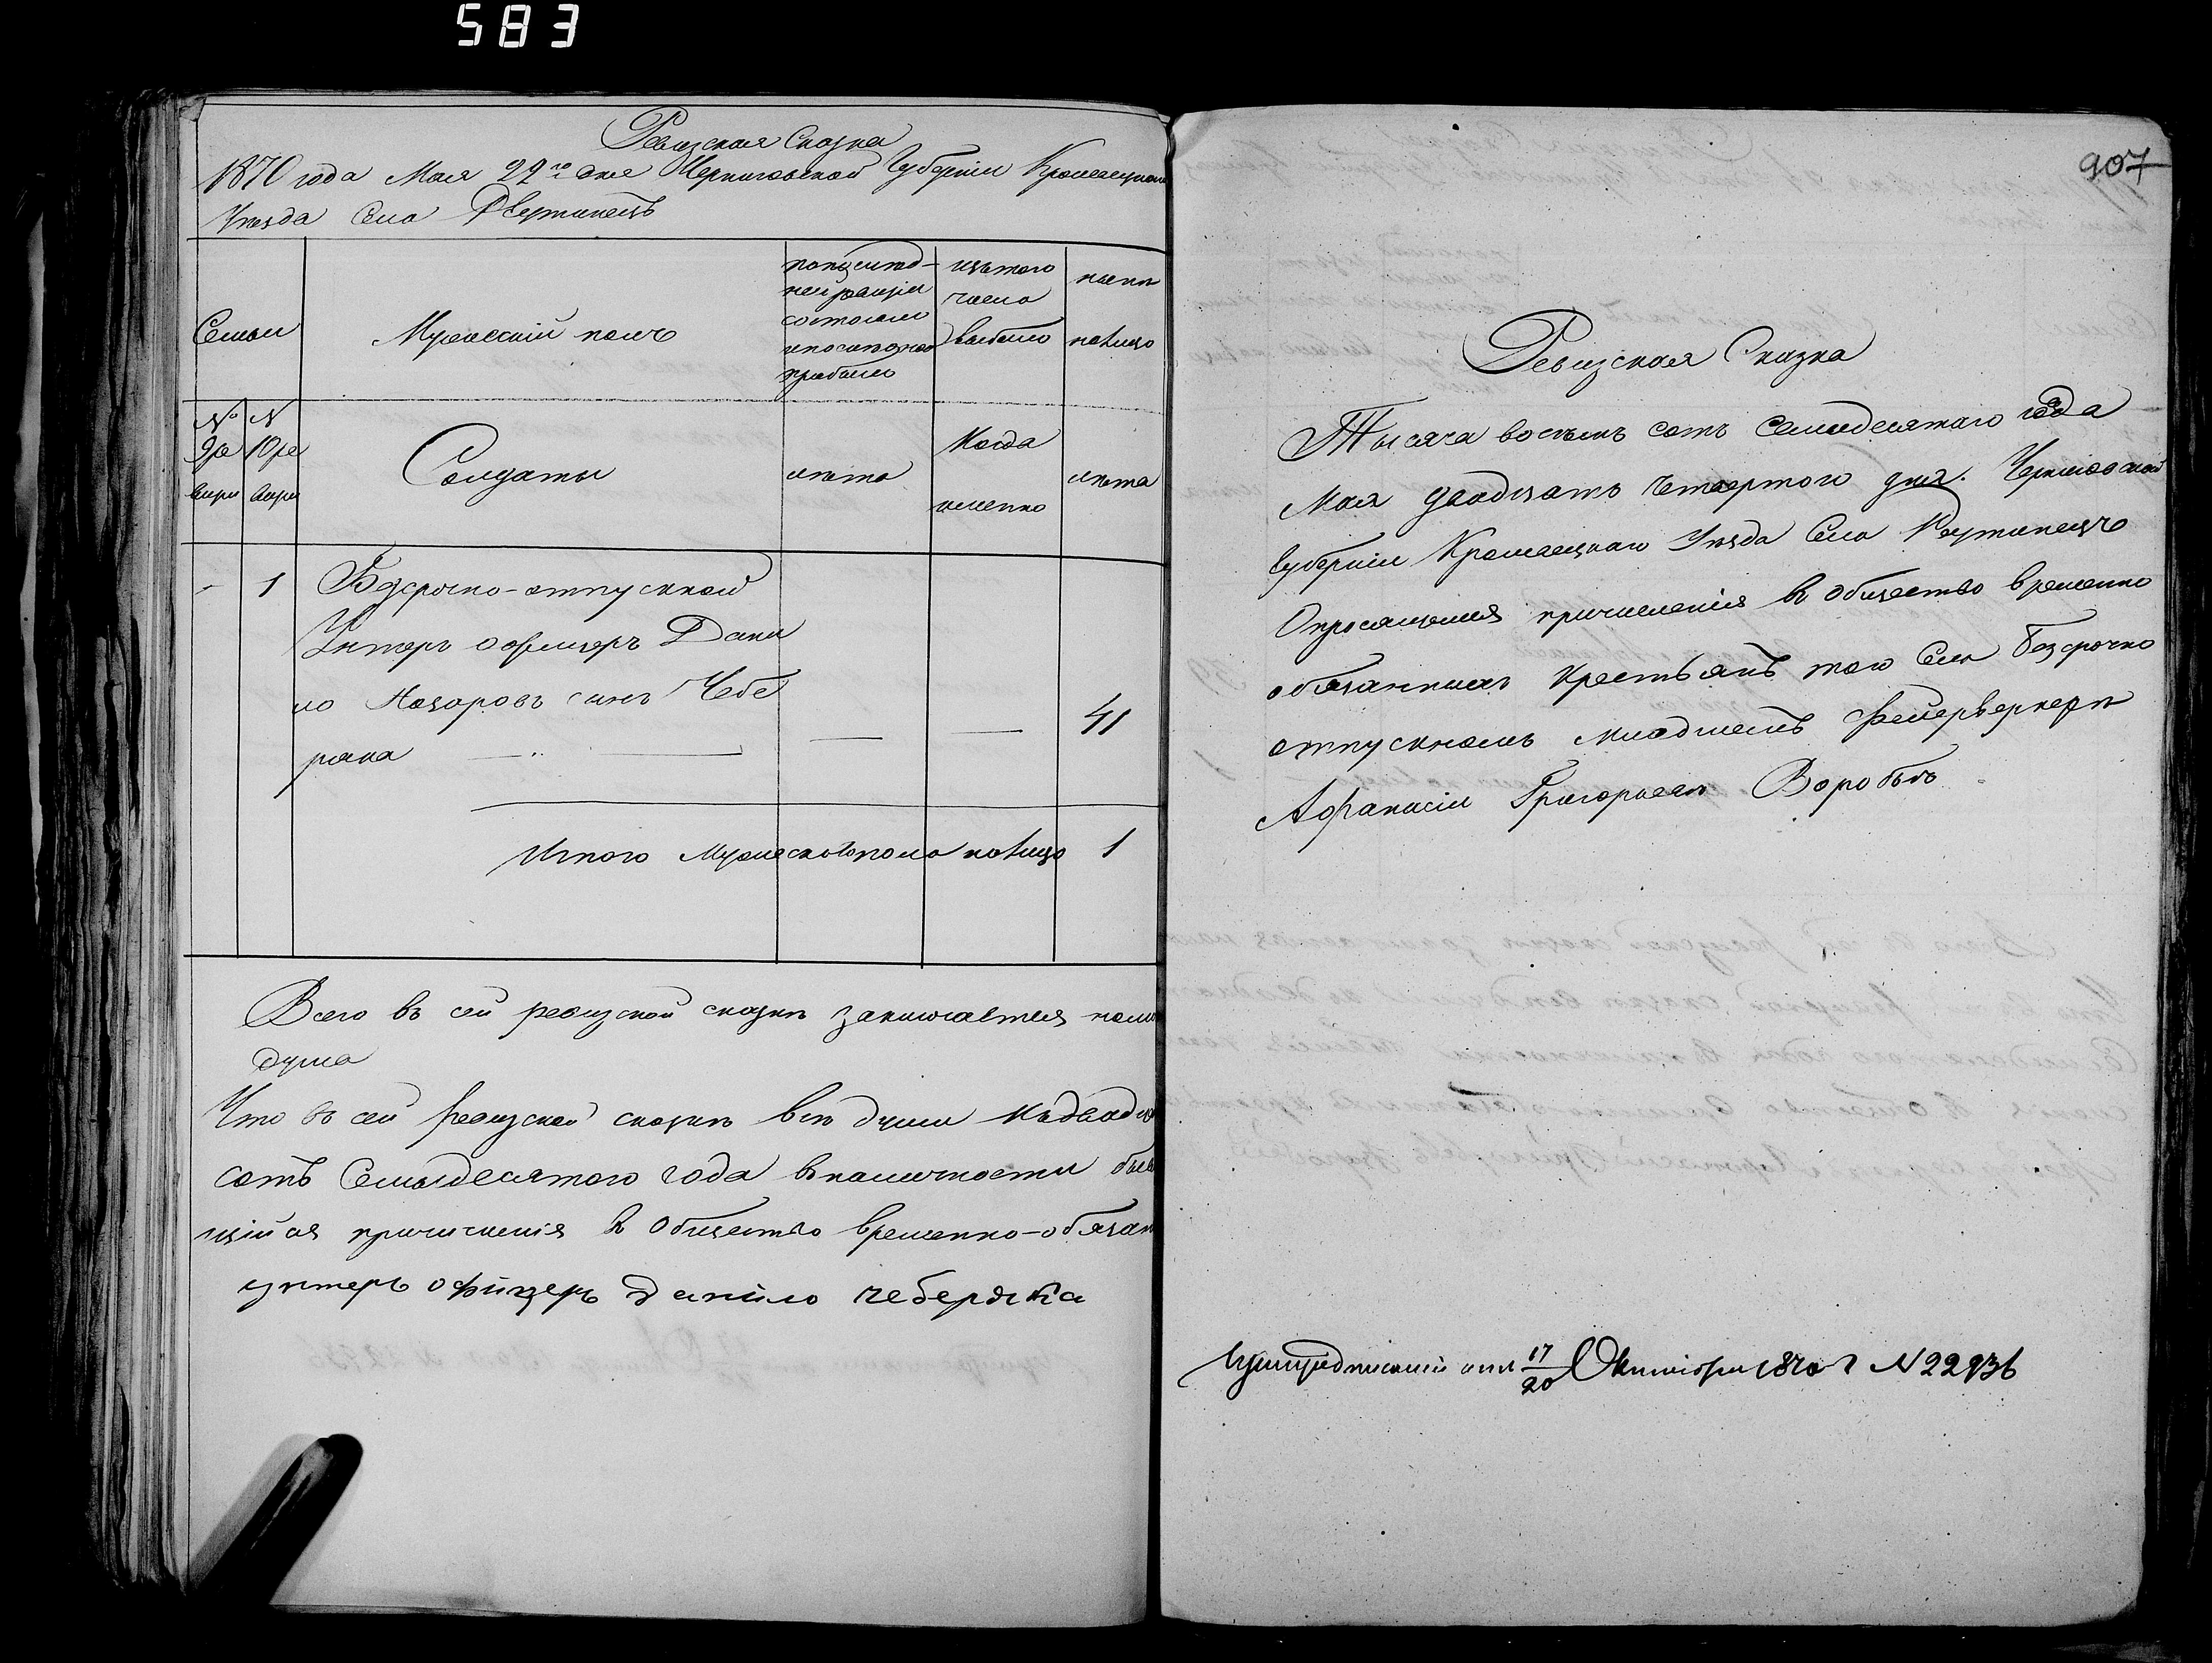 583
Ревизская Сказка
1870 года Мая 22го дня Черниговской Губернии Кролевецкаго
Уезда Села Реутинецъ
Семьи
Мужескій полъ
по последней ревизіи состояло и после оной прибыло
изъ того числа выбыло
ныне на лицо
№ 9й ревизіи
№ 10 ревизіи
Солдаты
лета
Когда именно
лета
- 1 Безсрочно-отпускной
Унтеръ офицеръ Дани
ло Назаровъ сынъ Чебе
ряка — — — 41
Итого Мужеска пола на лицо 1
Всего въ сей ревизской сказке заключается
душа
Что въ сей ревизской сказке все души къ
сотъ Семьдесятого года в наличности
щійся причисленія в Общество временно-обязан
унтеръ офицеръ Данило чеберяка
907
Ревизская Сказка
Тысяча восемь сотъ Семидесятаго года
Мая двадцать четвертого дня. Черниговской
Губерніи Кролевецкаго Уезда Села Реутинецъ
О просящемся причисленія в Общество временно
обязанныхъ крестьянъ того Села безсрочно
отпускномъ младшемъ фейерверкере
Афанасіи Григорьеве Воробье
17/20 Октября 1870 г № 22936